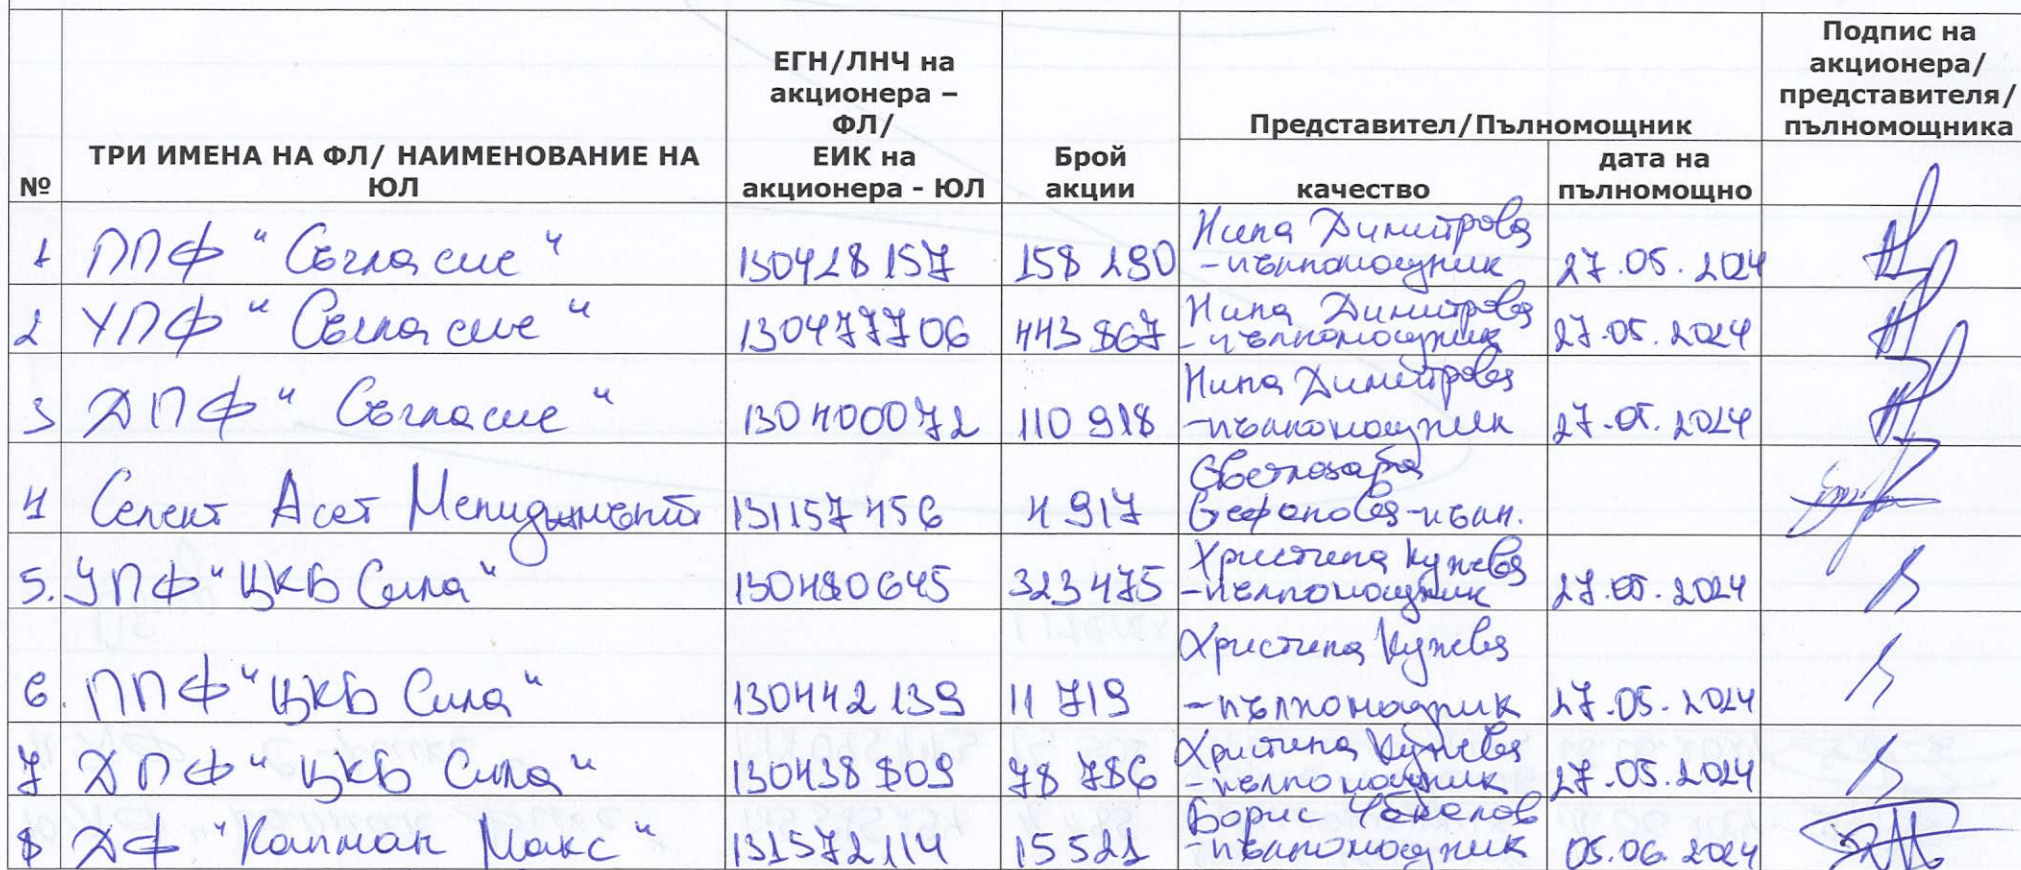 Подпис на
акционера/
представителя/
пълномощника
ЕГН/ЛНЧ на
акционера –
ФЛ/
ЕИК на
акционера - ЮЛ
Представител/Пълномощник
№
ТРИ ИМЕНА НА ФЛ/ НАИМЕНОВАНИЕ НА
ЮЛ
Брой
акции
качество
дата на
пълномощно
1 ППФ "Съгласие" 130428157 158 290 Нина Димитрова
-пълномощник 27.05.2024
2 УПФ "Съгласие" 130477706 443 867 Нина Димитрова
-пълномощник 27.05.2024
3 ДПФ "Съгласие" 130400072 110 918 Нина Димитрова
-пълномощник 27.05.2024
4 Селект Асет Мениджмънт 131157456 4 917 Светлозара
Стефанова-пълн.
5. УПФ "ЦКБ Сила" 130480645 323 475 Христина Кужева
-пълномощник 27.05.2024
6. ППФ "ЦКБ Сила" 130442139 11 719 Христина Кужева
-пълномощник 27.05.2024
7 ДПФ "ЦКБ Сила" 130438809 78 786 Христина Кужева
-пълномощник 27.05.2024
8 ДФ "Капман Макс" 131572114 15 521 Борис
-пълномощник 05.06.2024